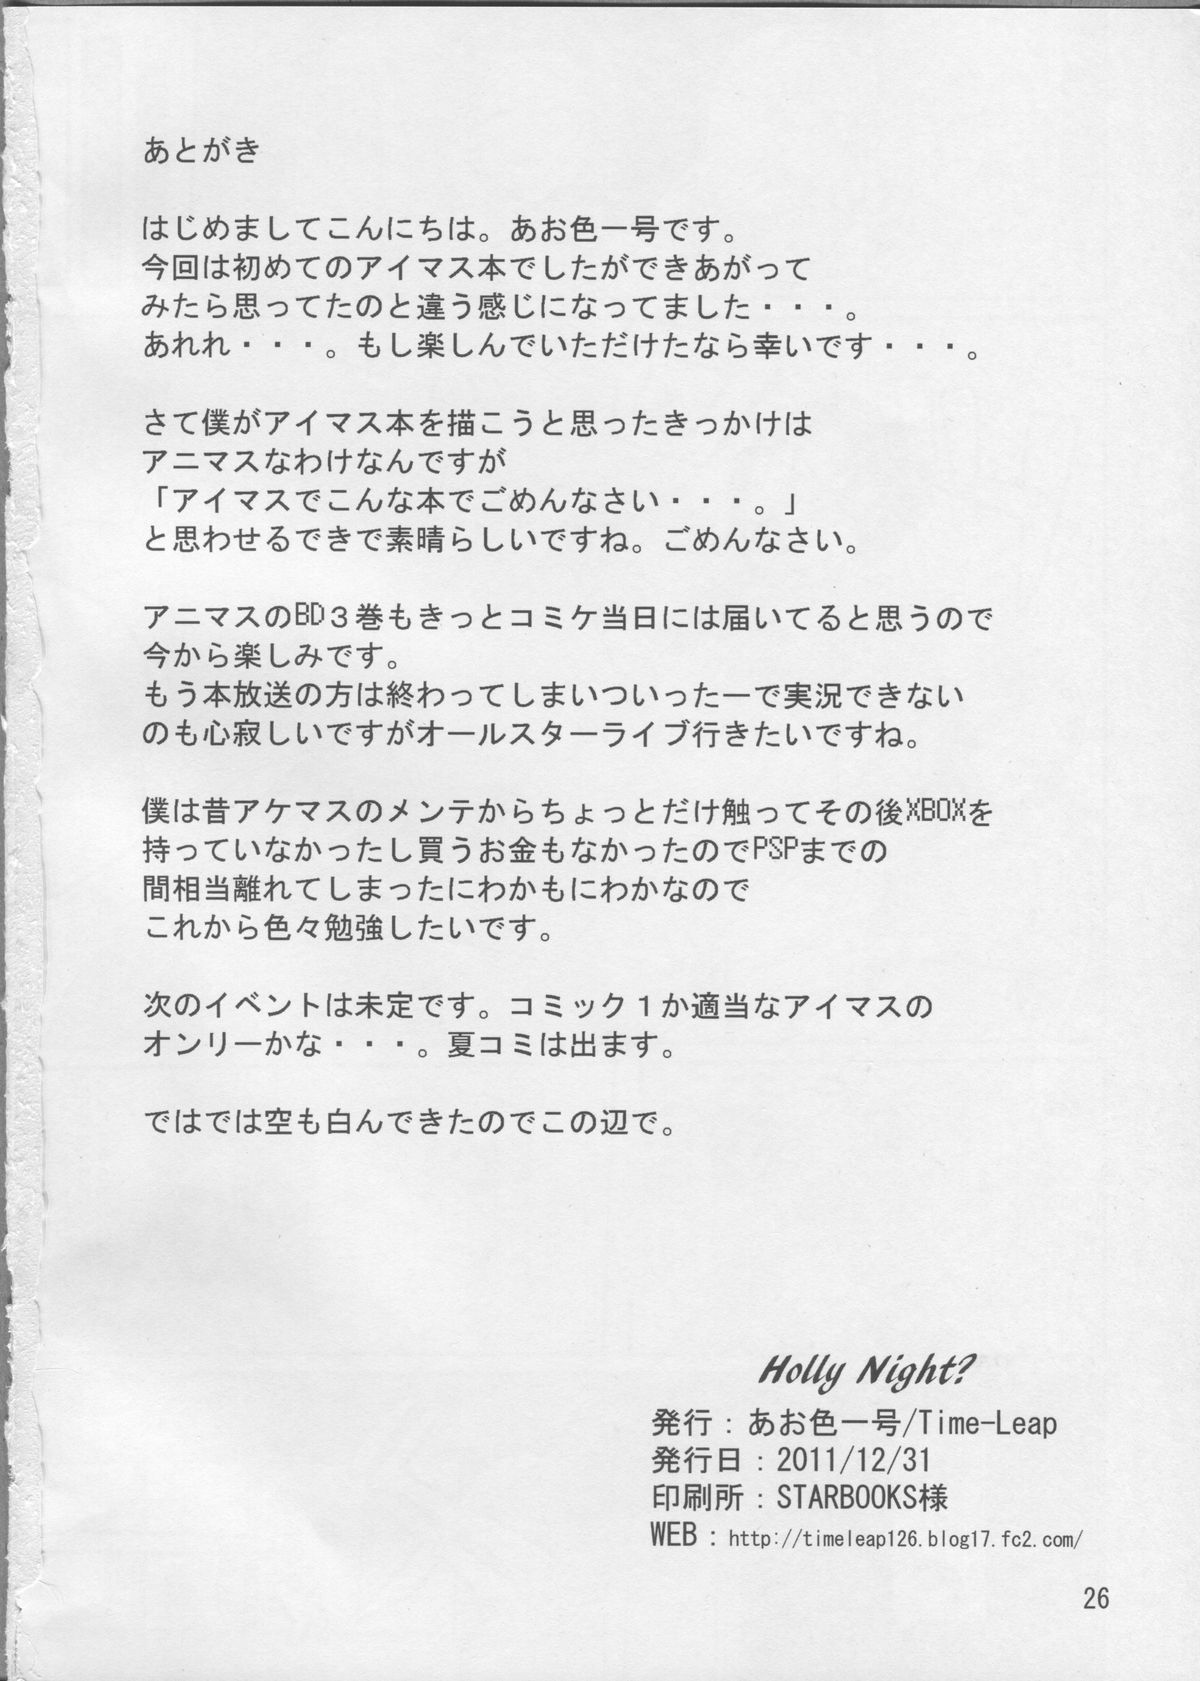 あとがき
はじめましてこんにちは。あお色一号です。
今回は初めてのアイマス本でしたができあがって
みたら思ってたのと違う感じになってました・・・。
あれれ・・・。もし楽しんでいただけたなら幸いです・・・。
さて僕がアイマス本を描こうと思ったきっかけは
アニマスなわけなんですが
「アイマスでこんな本でごめんなさい・・・。」
と思わせるできで素晴らしいですね。ごめんなさい。
アニマスのBD３巻もきっとコミケ当日には届いてると思うので
今から楽しみです。
もう本放送の方は終わってしまいついったーで実況できない
のも心寂しいですがオールスターライブ行きたいですね。
僕は昔アケマスのメンテからちょっとだけ触ってその後XBOXを
持っていなかったし買うお金もなかったのでPSPまでの
間相当離れてしまったにわかもにわかなので
これから色々勉強したいです。
次のイベントは未定です。コミック１か適当なアイマスの
オンリーかな・・・。夏コミは出ます。
ではでは空も白んできたのでこの辺で。
Holly Night?
発行：あお色一号/Time-Leap
発行日：2011/12/31
印刷所：STARBOOKS様
WEB：http://timeleap126.blog17.fc2.com/
26